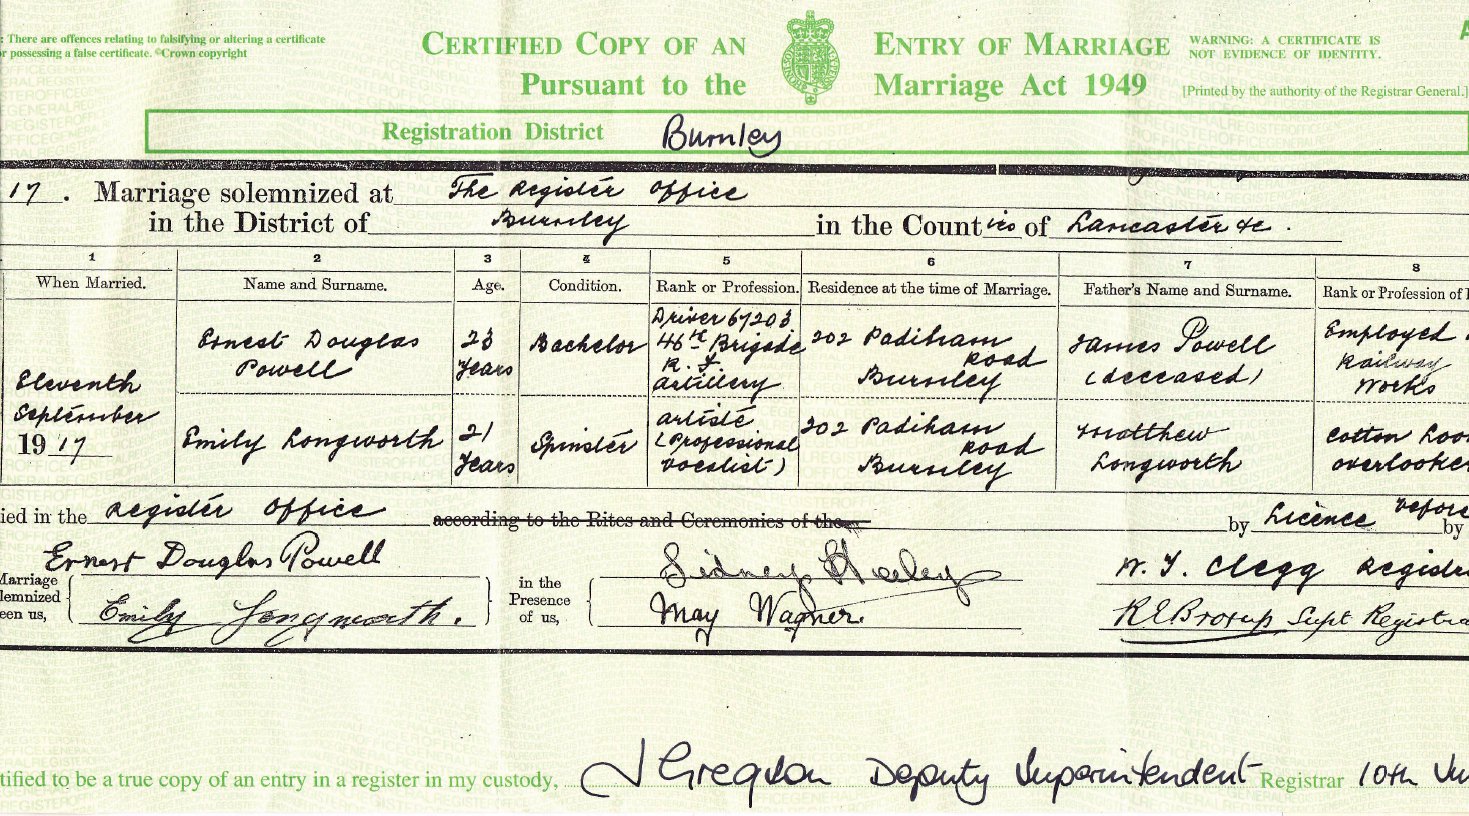 : There are offences relating to falsifying or altering a certificate
r possessing a false certificate. ©Crown copyright
CERTIFIED COPY OF AN ENTRY OF MARRIAGE
Pursuant to the Marriage Act 1949
WARNING: A CERTIFICATE IS
NOT EVIDENCE OF IDENTITY.
[Printed by the authority of the Registrar General.]
Registration District Burnley
17. Marriage solemnized at The Register Office
in the District of Burnley in the Counties of Lancaster &c.
1 2 3 4 5 6 7 8
When Married. Name and Surname. Age. Condition. Rank or Profession. Residence at the time of Marriage. Father's Name and Surname. Rank or Profession of
Eleventh
September
1917
Ernest Douglas
Powell
23
Years
Bachelor
Driver 67203
46th Brigade
R. F.
Artillery
202 Padiham
Road
Burnley
James Powell
(deceased)
Employed
Railway
Works
Emily Longworth
21
Years
Spinster
Artiste
(Professional
Vocalist)
202 Padiham
Road
Burnley
Matthew
Longworth
Cotton Loo
overlooker
ied in the Register Office according to the Rites and Ceremonies of the by Licence before by
Ernest Douglas Powell
Marriage
lemnized
een us,
Emily Longworth.
in the
Presence
of us,
Sidney
May Wagner.
W. T. Clegg Registra
Supt Registra
tified to be a true copy of an entry in a register in my custody, J Gregson Deputy Superintendent Registrar 10th Ju